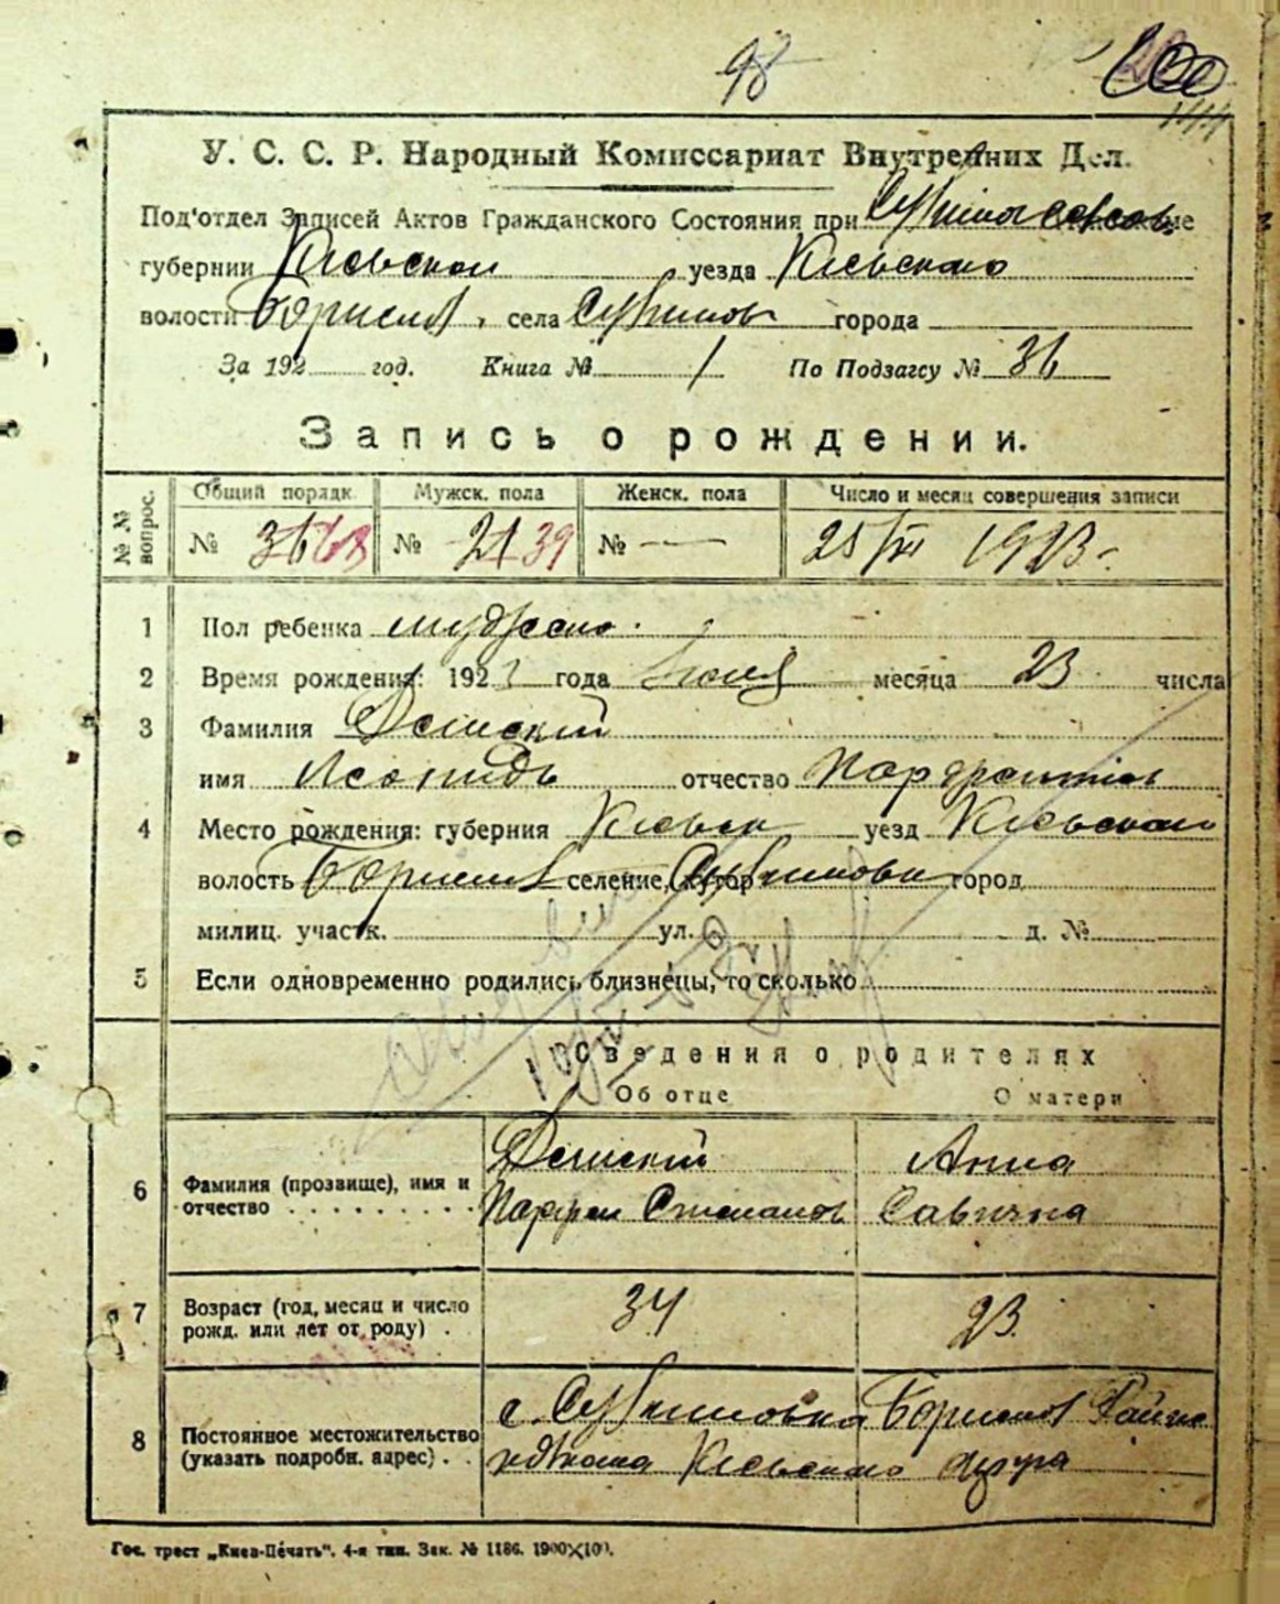 98
У. С. С. Р. Народный Комиссариат Внутренних Дел.
Под'отдел Записей Актов Гражданского Состояния при
губернии Киевской уезда Киевского
волости Борисп. села города
За 192 год. Книга № 1 По Подзагсу № 36
Запись о рождении.
№ № вопрос. Общий порядк Мужск. пола Женск. пола Число и месяц совершения записи
№ 36 68 № 21 39 № — 25/VII 1923.
1 Пол ребенка мужеско.
2 Время рождения: 1923 года Июля месяца 23 числа
3 Фамилия Демский
имя Леонидъ отчество
4 Место рождения: губерния Киевск уезд Киевского
волость Борисп селение, хутор город
милиц. участк. ул. д. №
5 Если одновременно родились близнецы, то сколько
Сведения о родителях
Об отце О матери
6 Фамилия (прозвище), имя и отчество Демский Анна
Парфен Степанов Савична
7 Возраст (год, месяц и число рожд. или лет от роду) 34 23
8 Постоянное местожительство (указать подробн. адрес) с.
Киевского округа
Гос. трест „Киев-Печать". 4-я тип. Зак. № 1186. 1900×100.